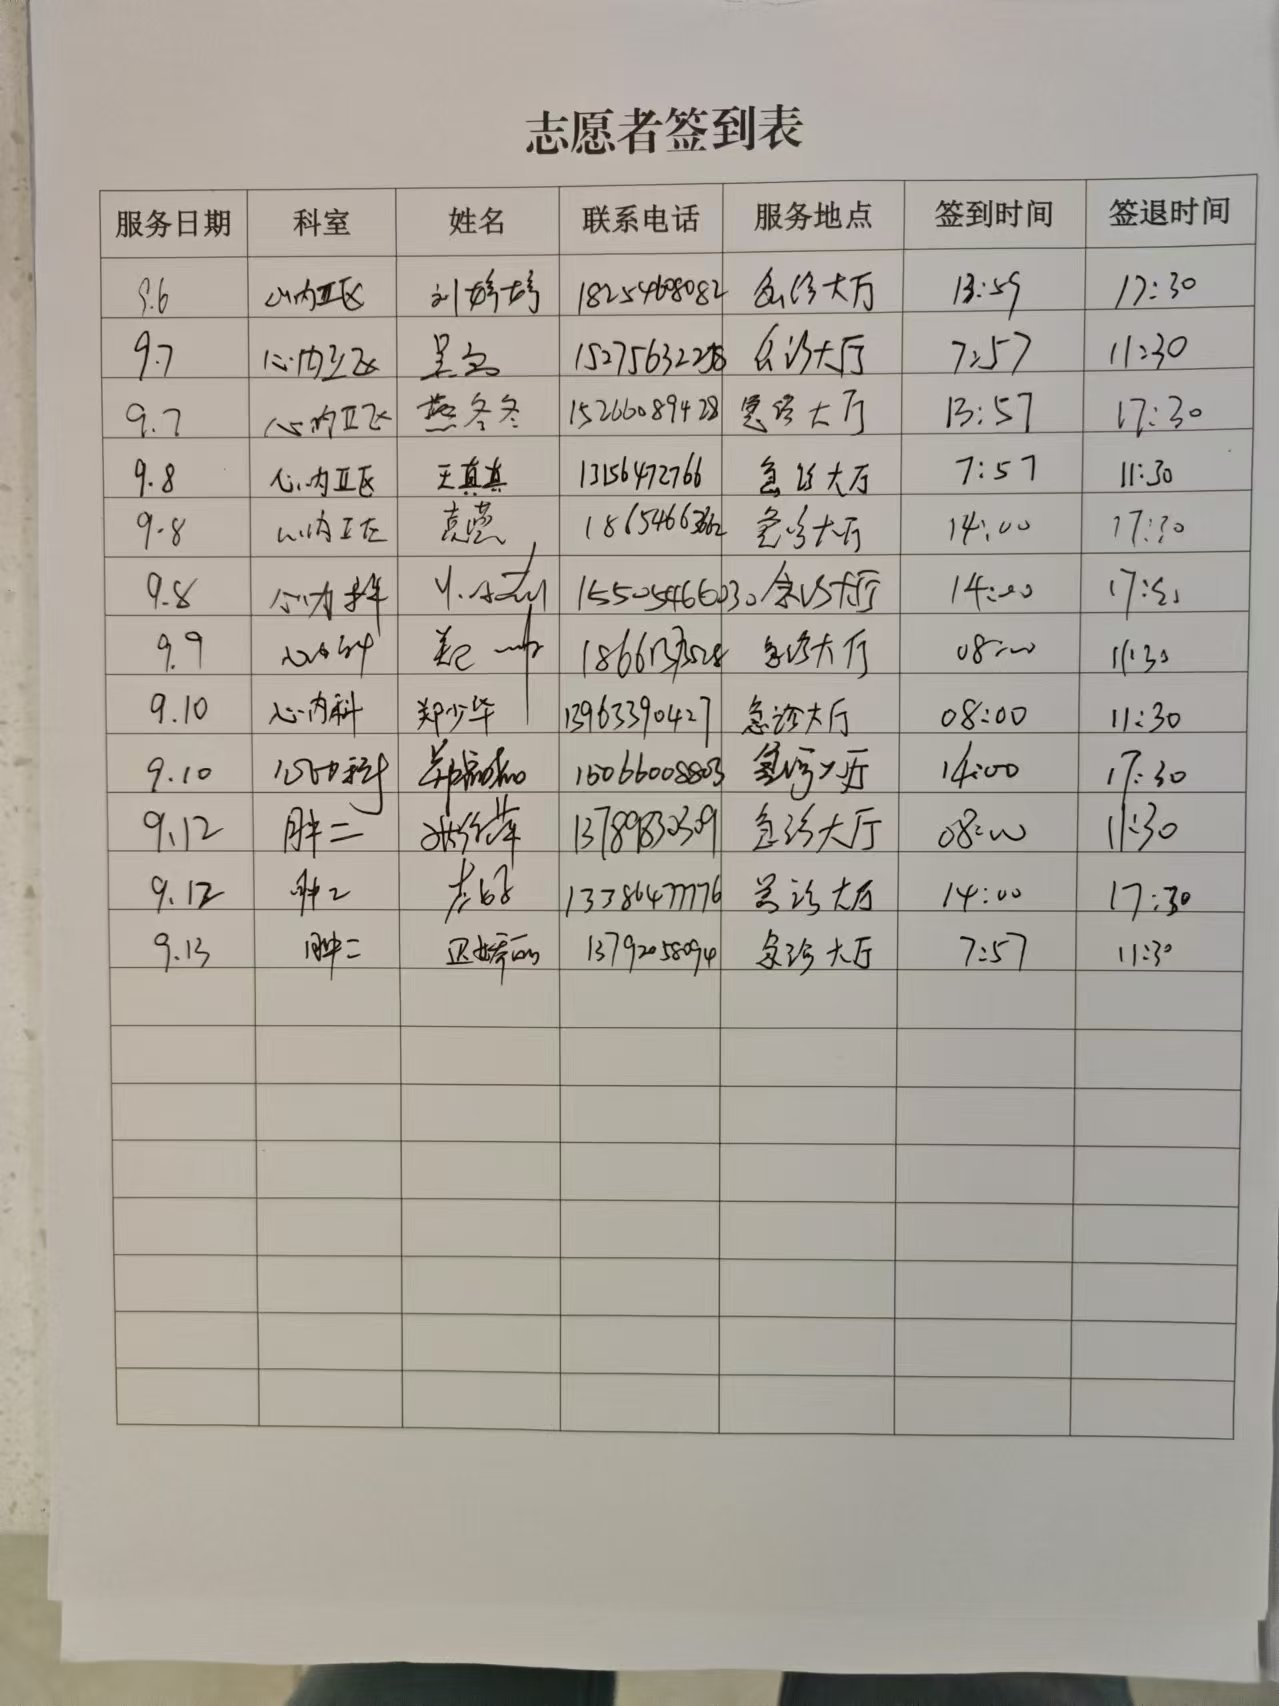 志愿者签到表
服务日期 科室 姓名 联系电话 服务地点 签到时间 签退时间
9.6 心内五区 刘婷婷 18254608082 急诊大厅 13:59 17:30
9.7 心内五区 15275632258 急诊大厅 7:57 11:30
9.7 心内五区 燕冬冬 15266089428 急诊大厅 13:57 17:30
9.8 心内五区 王真真 13156472766 急诊大厅 7:57 11:30
9.8 心内五区 高燕 急诊大厅 14:00 17:30
9.8 心内 15505466030 急诊大厅 14:00
9.9 心内科 急诊大厅 08:00 11:30
9.10 心内科 郑少华 13963390427 急诊大厅 08:00 11:30
9.10 心内科 15066008803 急诊大厅 14:00 17:30
9.12 肿二 急诊大厅 08:00 11:30
9.12 肿二 急诊大厅 14:00 17:30
9.13 肿二 13792058094 急诊大厅 7:57 11:30